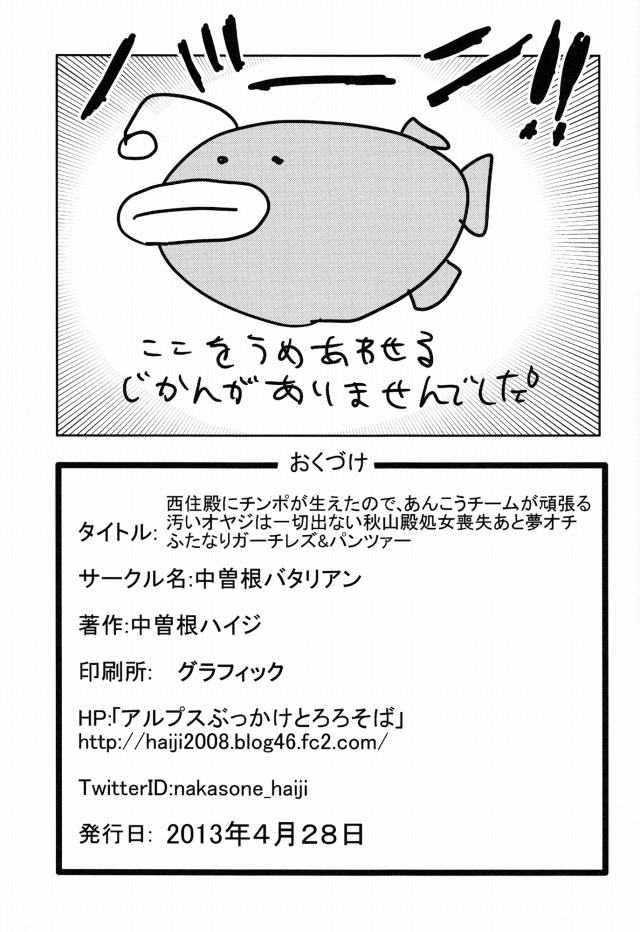 バーン!!
ここをうめあわせる
じかんがありませんでした。
おくづけ
タイトル:
西住殿にチンポが生えたので、あんこうチームが頑張る
汚いオヤジは一切出ない秋山殿処女喪失あと夢オチ
ふたなりガーチレズ&パンツァー
サークル名:中曽根バタリアン
著作:中曽根ハイジ
印刷所: グラフィック
HP:「アルプスぶっかけとろろそば」
http://haiji2008.blog46.fc2.com/
TwitterID:nakasone_haiji
発行日: 2013年4月28日